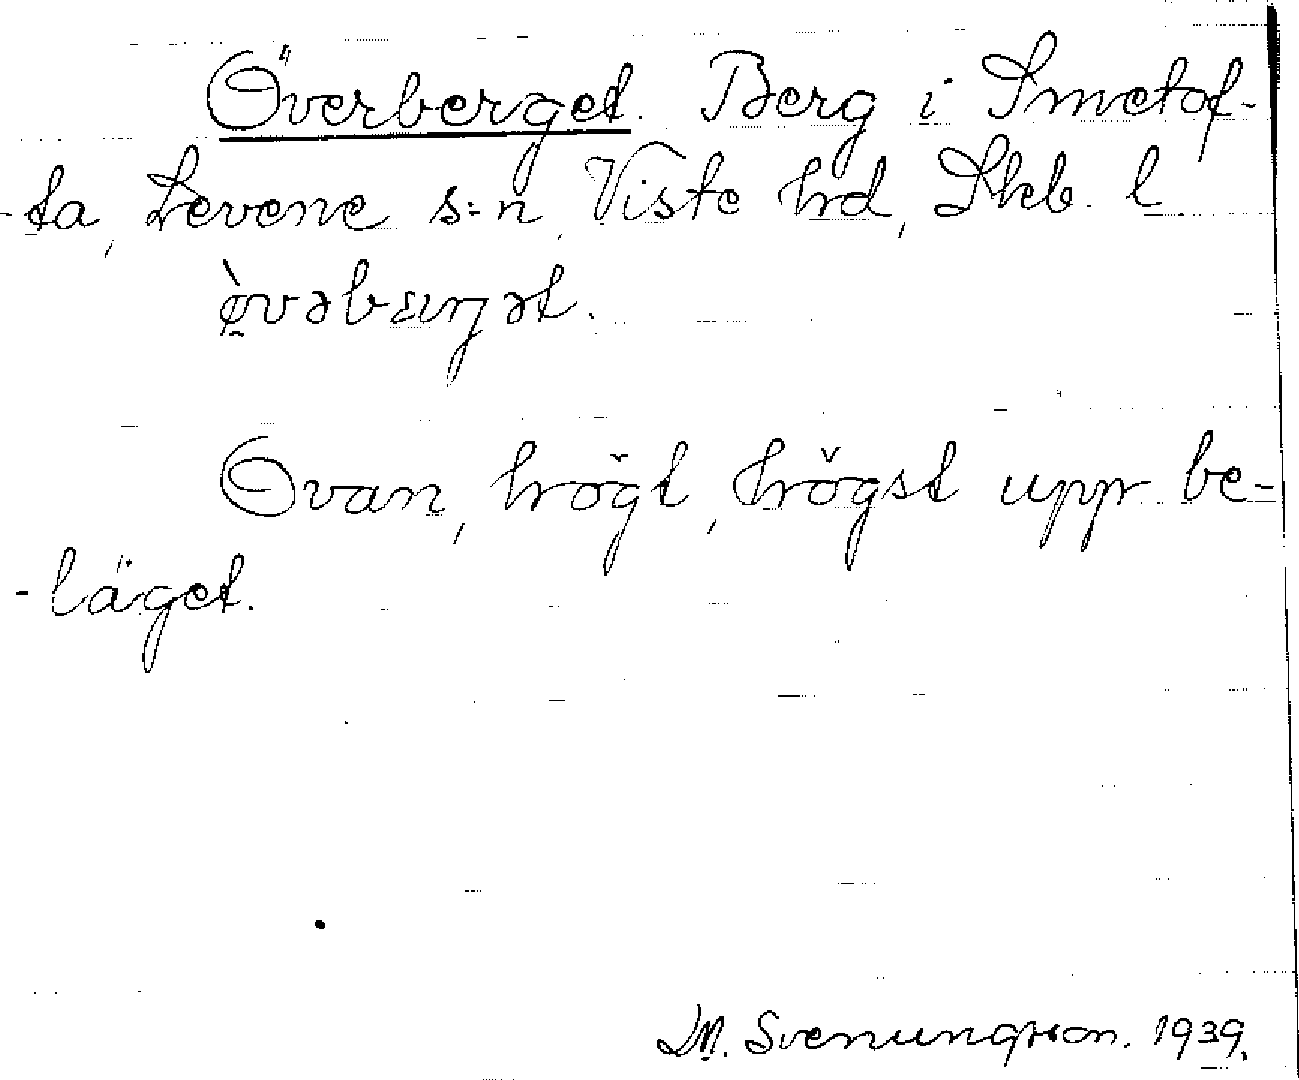 Överberget. Berg i Smetof-
-ta, Levene s:n, Viste hd, Skb. l
ö̀vəbæŋət.
Ovan, högt, högst upp be-
-läget.
M. Svenungsson. 1939.